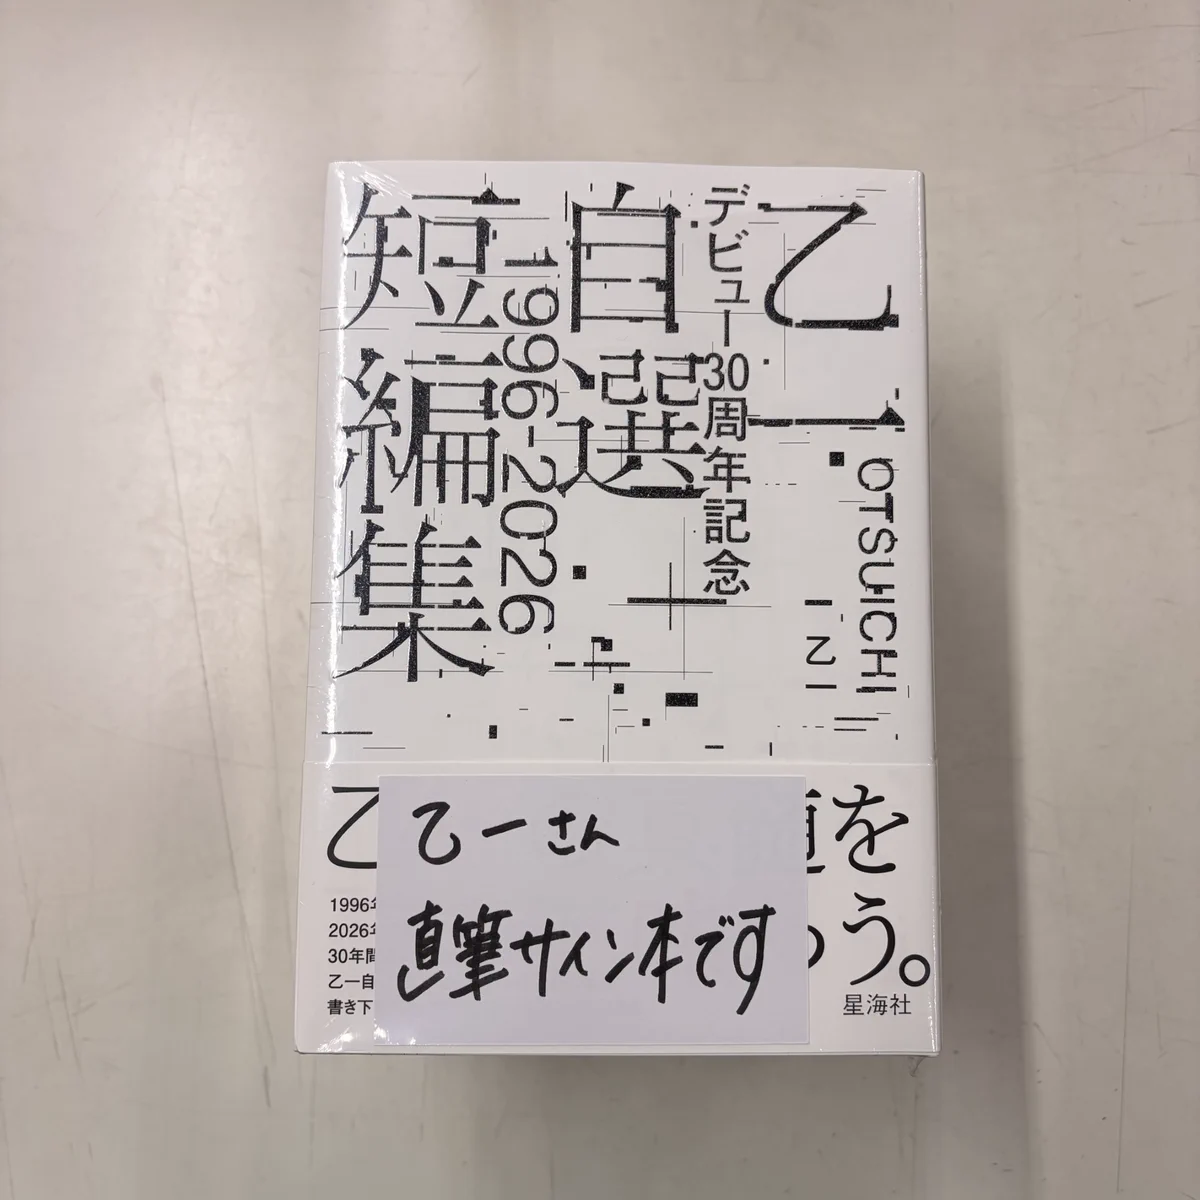 乙一
デビュー30周年記念
自選
短編集
1996-2026
OTSUICHI
乙一
乙
を
う。
1996年
2026年
30年間
乙一自
書き下
星海社
乙一さん
直筆サイン本です